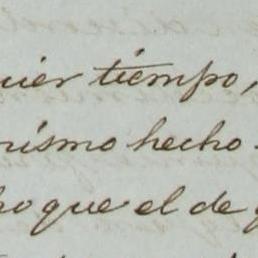 uier tiempo,
mismo hecho
ho que el de